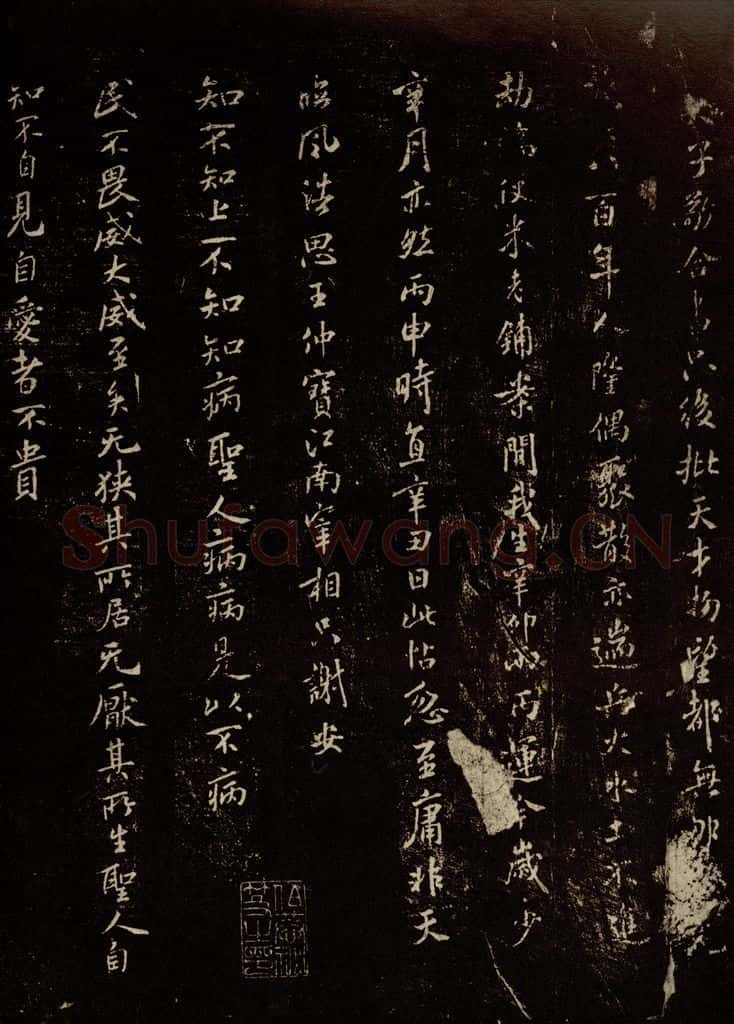 子敬合書只後批天才物望都無那
百年人隨偶聚散亦遄無火水土不進
劫使米老鋪案間我生辛卯丙運今歲步
辛月亦然丙申時直辛丑日此帖忽至庸非天
臨風浩思王仲寶江南宰相只謝安
知不知上不知知病聖人病病是以不病
民不畏威大威至矣无狹其所居无厭其所生聖人自
知不自見自愛者不貴
Shufawang.CN